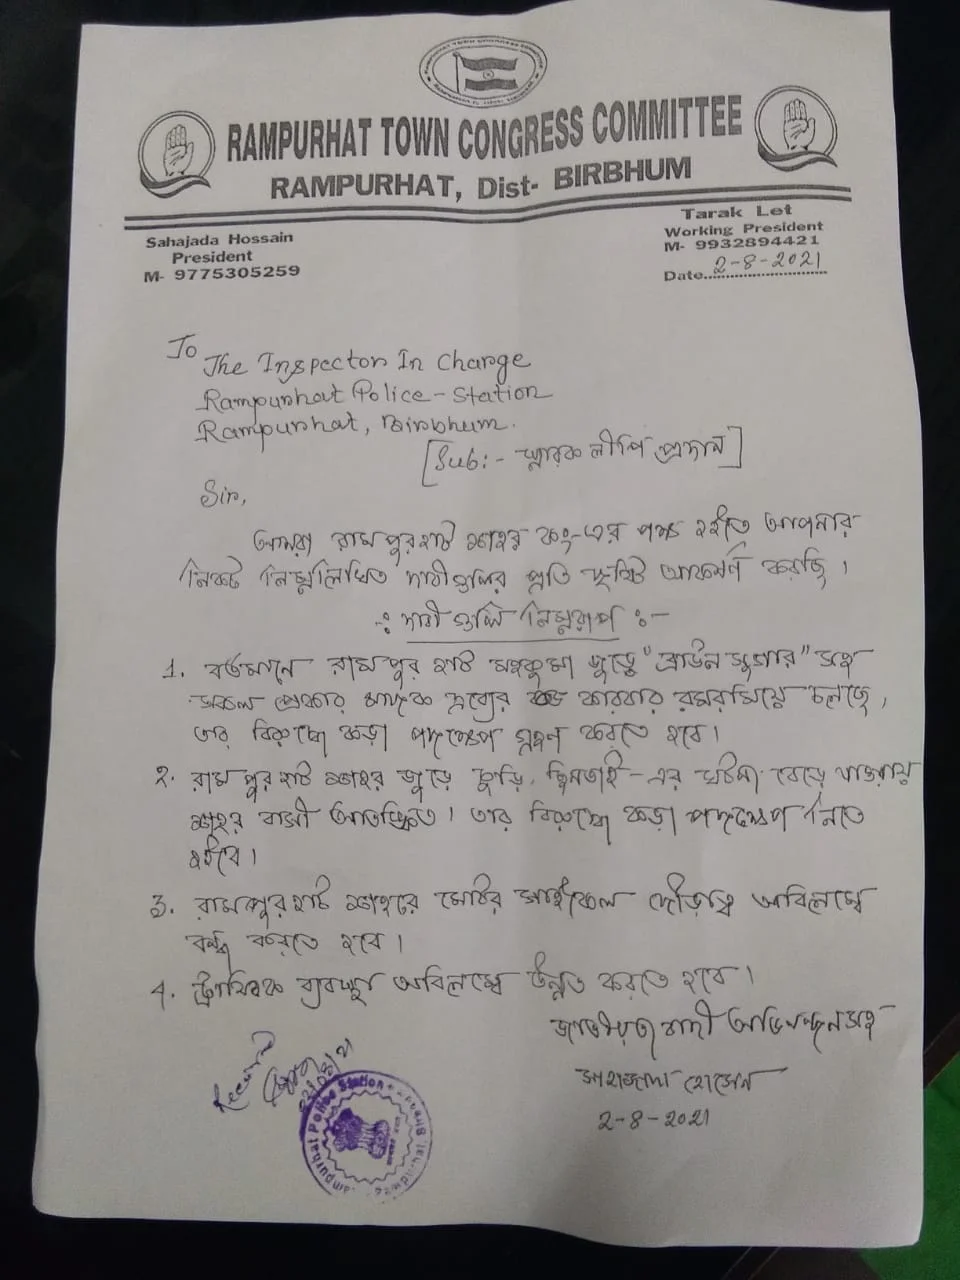 RAMPURHAT TOWN CONGRESS COMMITTEE
RAMPURHAT, Dist- BIRBHUM
Sahajada Hossain
President
M- 9775305259
Tarak Let
Working President
M- 9932894421
Date 2-8-2021
To
The Inspector In Charge
Rampurhat Police-Station
Rampurhat, Birbhum.
[Sub:- স্মারক লীপি প্রদান]
Sir,
আমরা রামপুরহাট শহর কং-এর পক্ষ হইতে আপনার
নিকট নিম্নলিখিত দাবীগুলির প্রতি দৃষ্টি আকর্ষণ করছি।
-: দাবী গুলি নিম্নরূপ :-
1. বর্তমানে রামপুরহাট মহকুমা জুড়ে "ব্রাউন সুগার" সহ
সকল প্রকার মাদক দ্রব্যের কারবার রমরমিয়ে চলছে,
তার বিরুদ্ধে কড়া পদক্ষেপ গ্রহণ করতে হবে।
২. রামপুরহাট শহর জুড়ে চুরি, ছিনতাই-এর ঘটনা বেড়ে যাওয়ায়
শহর বাসী আতঙ্কিত। তার বিরুদ্ধে কড়া পদক্ষেপ নিতে
হইবে।
3. রামপুরহাট শহরে মোটর সাইকেল দৌড়াত্ব অবিলম্বে
বন্ধ করতে হবে।
4. ট্রাফিক ব্যবস্থা অবিলম্বে উন্নত করতে হবে।
জাতীয়তাবাদী অভিনন্দন সহ
সাহাজাদা হোসেন
2-8-2021
Received
02/08/21
Rampurhat Police Station